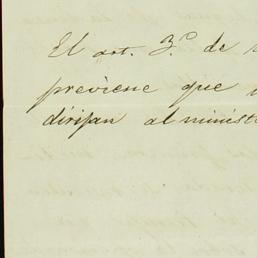 El art. 3.º de
previene que
dirijan al minist